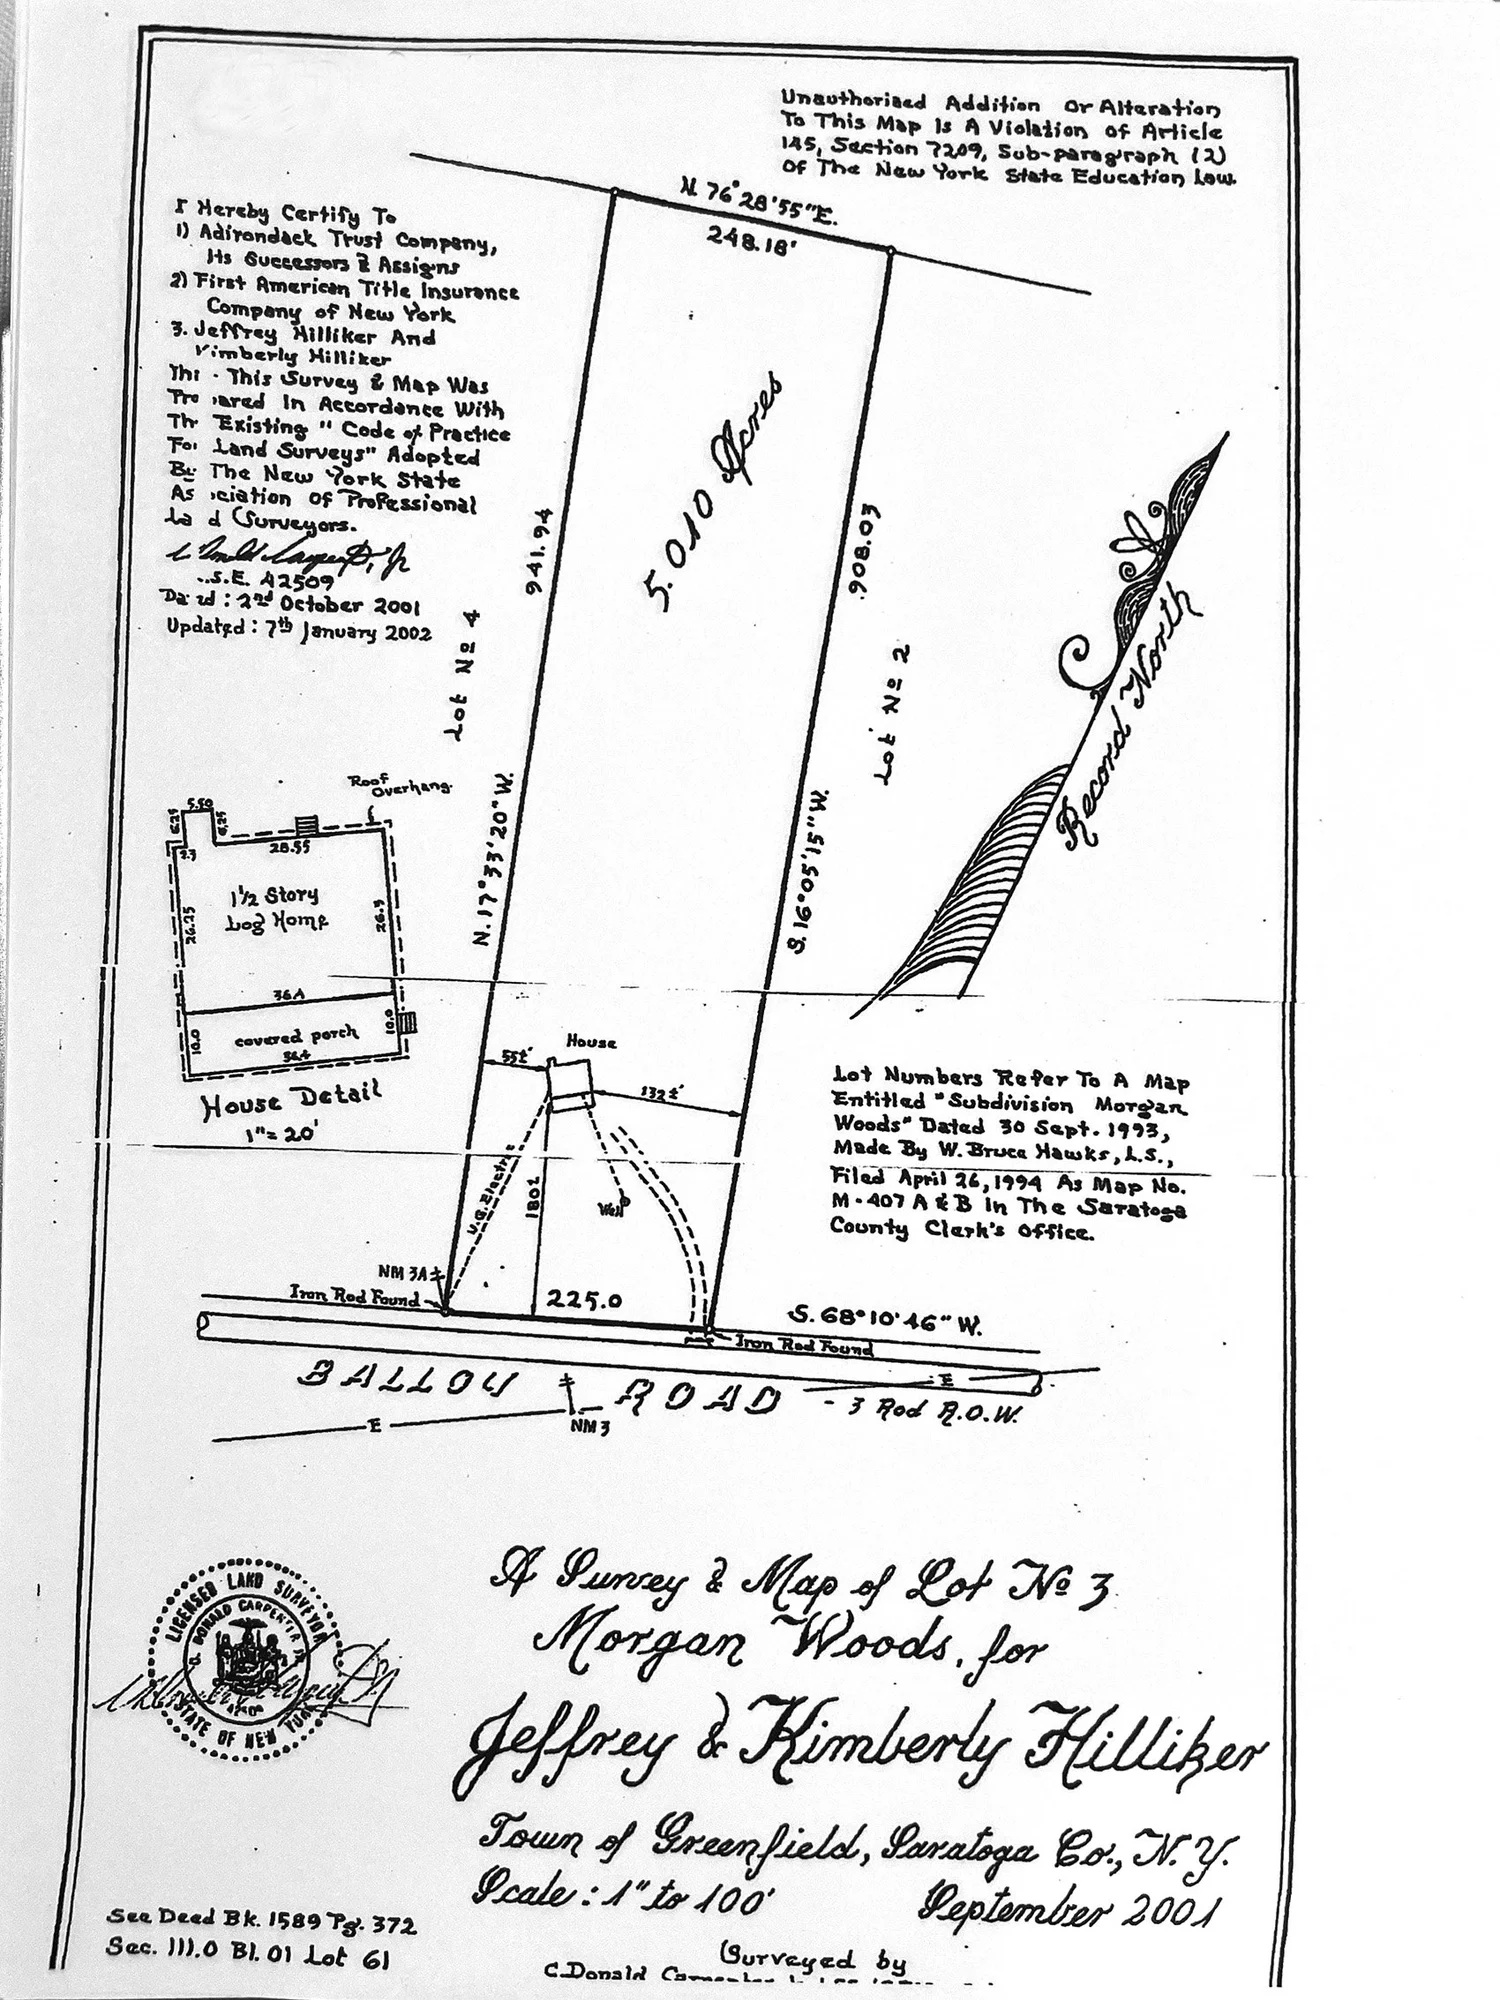 Unauthorized Addition Or Alteration
To This Map Is A Violation Of Article
145, Section 7209, Sub-paragraph (2)
Of The New York State Education Law.
N. 76° 28' 55" E.
248.18'
I Hereby Certify To
1) Adirondack Trust Company,
Its Successors & Assigns
2) First American Title Insurance
Company of New York
3. Jeffrey Hilliker And
Kimberly Hilliker
This Survey & Map Was
In Accordance With
Existing "Code of Practice
For Land Surveys" Adopted
By The New York State
Of Professional
Surveyors.
42509
2nd October 2001
Updated: 7th January 2002
5.010 Acres
941.94
908.03
Lot No 4
Lot No 2
N. 17° 33' 20" W.
S. 16° 05' 15" W.
Record North
Roof
Overhang
5.50
6.25
6.25
2.3
28.55
1½ Story
Log Home
26.25
26.3
36.4
10.0
10.0
covered porch
36.4
House Detail
1" = 20'
House
55±'
132±'
U.G. Electric
180±
Well
NM 3A
Iron Rod Found
225.0
S. 68° 10' 46" W.
Iron Rod Found
BALLOU ROAD - 3 Rod R.O.W.
E
E
NM 3
Lot Numbers Refer To A Map
Entitled "Subdivision Morgan
Woods" Dated 30 Sept. 1993,
Made By W. Bruce Hawks, L.S.,
Filed April 26, 1994 As Map No.
M-407 A & B In The Saratoga
County Clerk's Office.
A Survey & Map of Lot No 3
Morgan Woods, for
Jeffrey & Kimberly Hilliker
Town of Greenfield, Saratoga Co., N.Y.
Scale: 1" to 100' September 2001
LICENSED LAND SURVEYOR
DONALD CARPENTER
STATE OF NEW YORK
See Deed Bk. 1589 Pg. 372
Sec. 111.0 Bl. 01 Lot 61
Surveyed by
C. Donald Carpenter